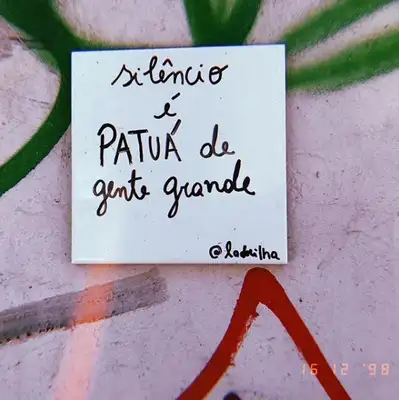 silêncio
é
PATUÁ de
gente grande
@ladrilha
16 12 '98